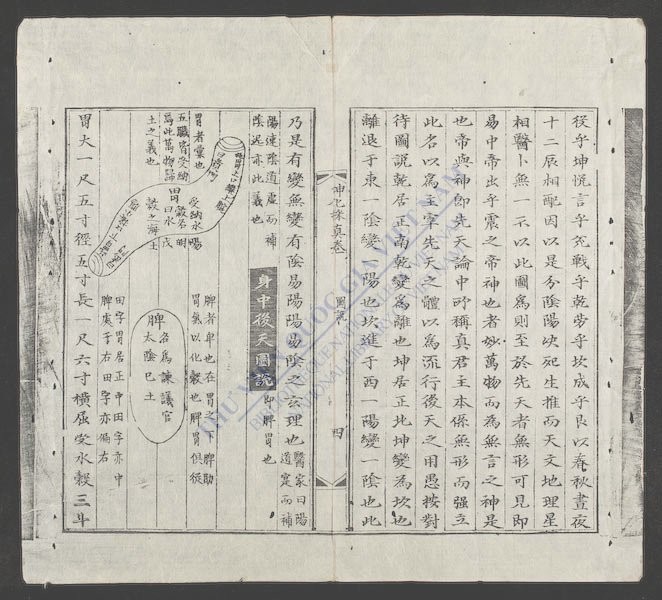 役乎坤悦言乎兌戰乎乾勞乎坎成乎艮以春秋晝夜
十二辰相配因以是分陰陽決死生推而天文地理星
相醫卜無一不以此圖爲則至於先天者無形可見即
易中帝出乎震之帝神也者妙萬物而為無言之神是
也帝與神即先天論中所稱真君主本係無形而强立
此名以爲主宰先天之體以爲流行後天之用愚按對
待圖說乾居正南乾變爲離也坤居正北坤變為坎也
離退于東一陰變一陽也坎進于西一陽變一陰也此
坤化採真卷
圖說
四
乃是有變無變有陰易陽陽易陰之玄理也
醫家曰陽
道寔而補
陽速陰道虛而補
陰遲亦此義也
身中後天圖說
即脾胃也
胃者彙也
五臟皆受納
爲此萬物歸
土之義也
田
受納水
穀名曰水
穀之海
陽
明
戊
土
脾者卑也在胃之下脾助
胃氣以化穀也脾胃俱從
田字胃居正中田字亦中
脾處于右田字亦偏右
脾
名為諫議官
太陰己土
胃大一尺五寸徑五寸長一尺六寸橫屈受水穀三斗
THƯ VIỆN QUỐC GIA VIỆT NAM